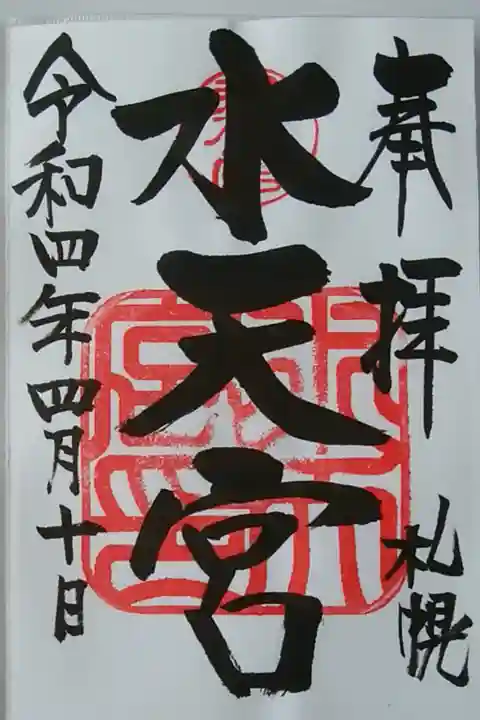 奉拝
札幌
水天宮
令和四年四月十日